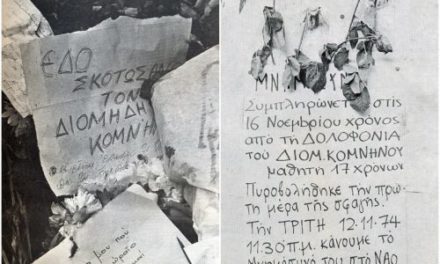 ΕΔΩ
ΣΚΟΤΩΣΑΝ
ΤΟΝ
ΔΙΟΜΗΔΗ
ΚΟΜΝΗΝΟ
μου που
Συμπληρώνεται στις
16 Νοεμβρίου χρόνος
από τη ΔΟΛΟΦΟΝΙΑ
του ΔΙΟΜ. ΚΟΜΝΗΝΟΥ
μαθητη 17 χρονων
Πυροβολήθηκε την πρω-
τη μερα της σφαγης.
Την ΤΡΙΤΗ 12.11.74
11.30 π.μ. κάνουμε το
Μνημόσυνό του στο ΝΑΟ